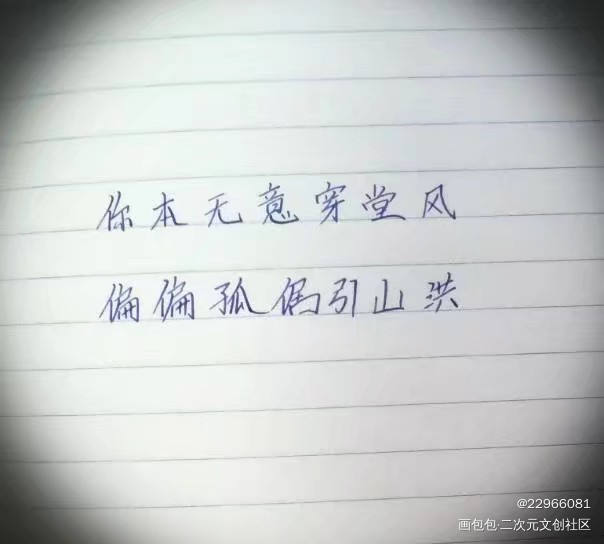 你本无意穿堂风
偏偏孤倨引山洪
@22966081
画包包·二次元文创社区